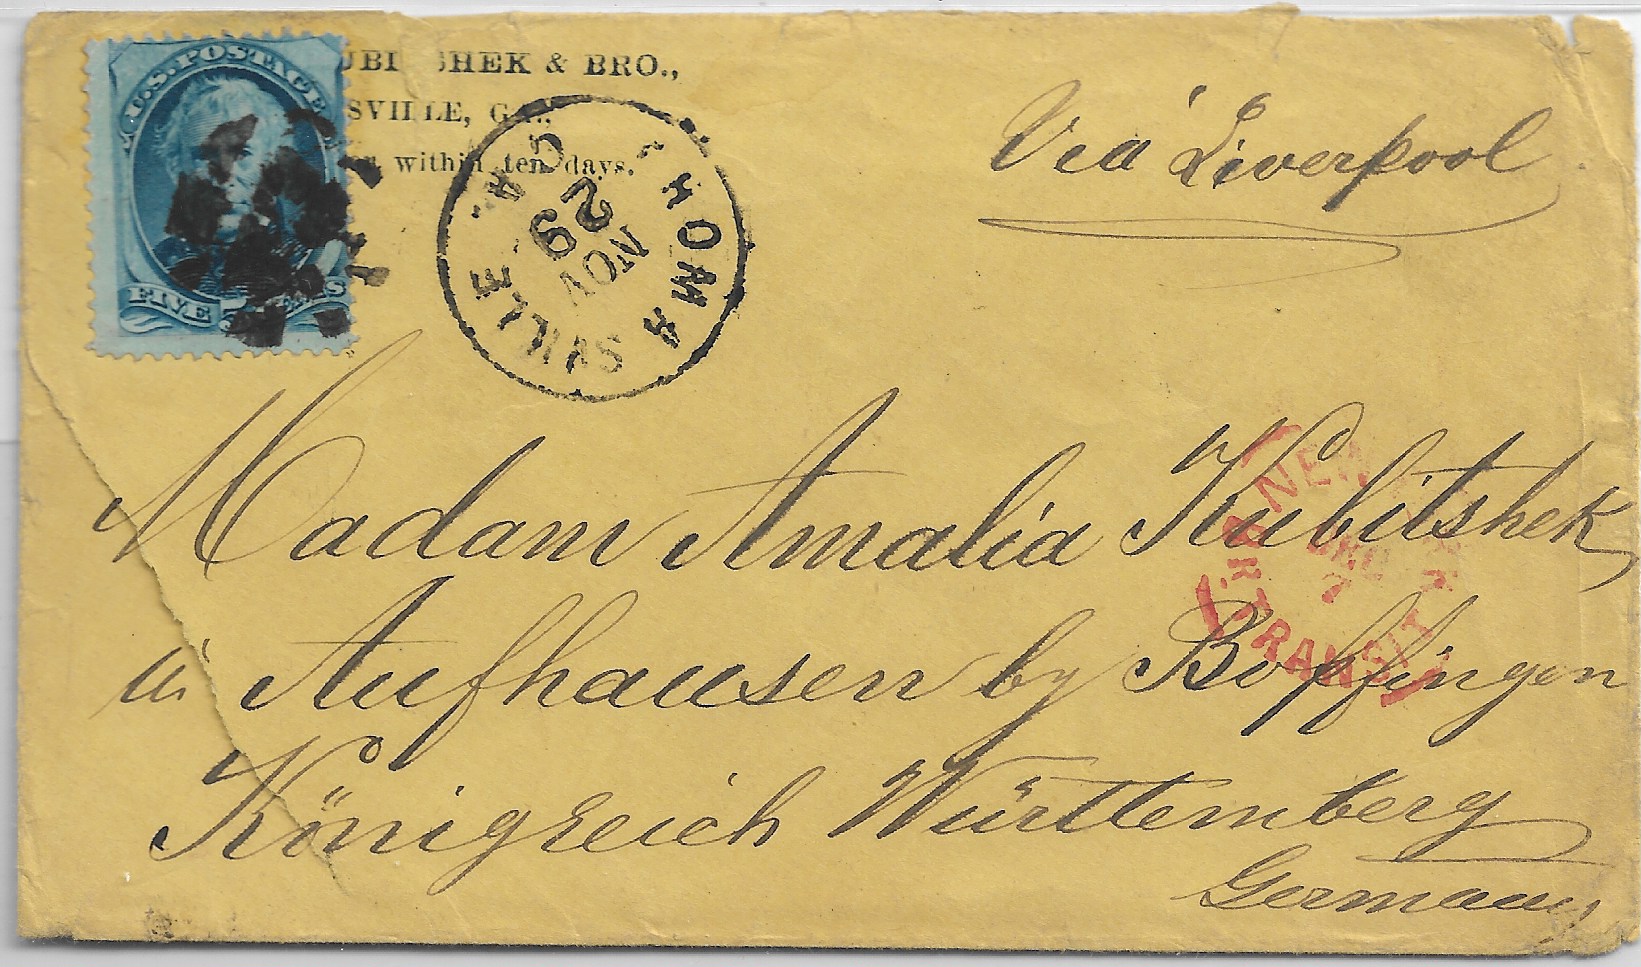 U.S. POSTAGE
FIVE 5 CENTS
UBITSHEK & BRO.,
SVILLE, GA.,
within ten days.
THOMASVILLE GA.
NOV
29
Via Liverpool
Madam Amalia Kubitshek
in Aufhausen by Bopfingen
Königreich Württemberg
Germany
NEW YORK
DEC
7
BR. TRANSIT